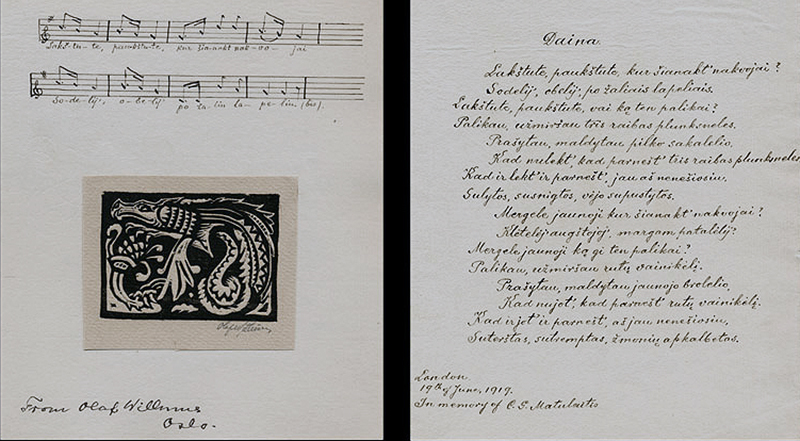 Lakš-tu-te, paukštu-te, kur šianakt nak-vo-jai
So-de-lij, o-be-lij po ža-liu la-pe-liu (bis).
From Olaf Willums
Oslo.
Daina.
Lakštute, paukštute, kur šianakt' nakvojai?
Sodelij, obelij, po žaliais lapeliais.
Lakštute, paukštute, vai ką ten palikai?
Palikau, užmiršau tris raibas plunksneles.
Prašytau, maldytau pilko sakalelio,
Kad nulekt', kad parnešt' tris raibas plunksneles
Kad ir lekt' ir parnešt', jau aš nenešiosiu,
Sulytos, susnigtos, vėjo supustytos.
Mergele jaunoji kur šianakt' nakvojai?
Klėtelėj augštojoj, margam patalėlij?
Mergele jaunoji ką gi ten palikai?
Palikau, užmiršau rutų vainikėlį.
Prašytau, maldytau jaunojo brolelio,
Kad nujot', kad parnešt' rutų vainikėlį.
Kad ir jot' ir parnešt', aš jau nenešiosiu,
Suterštas, sutremptas, žmonių apkalbėtas.
London.
19th of June, 1919.
In memory of C. S. Matulaitis